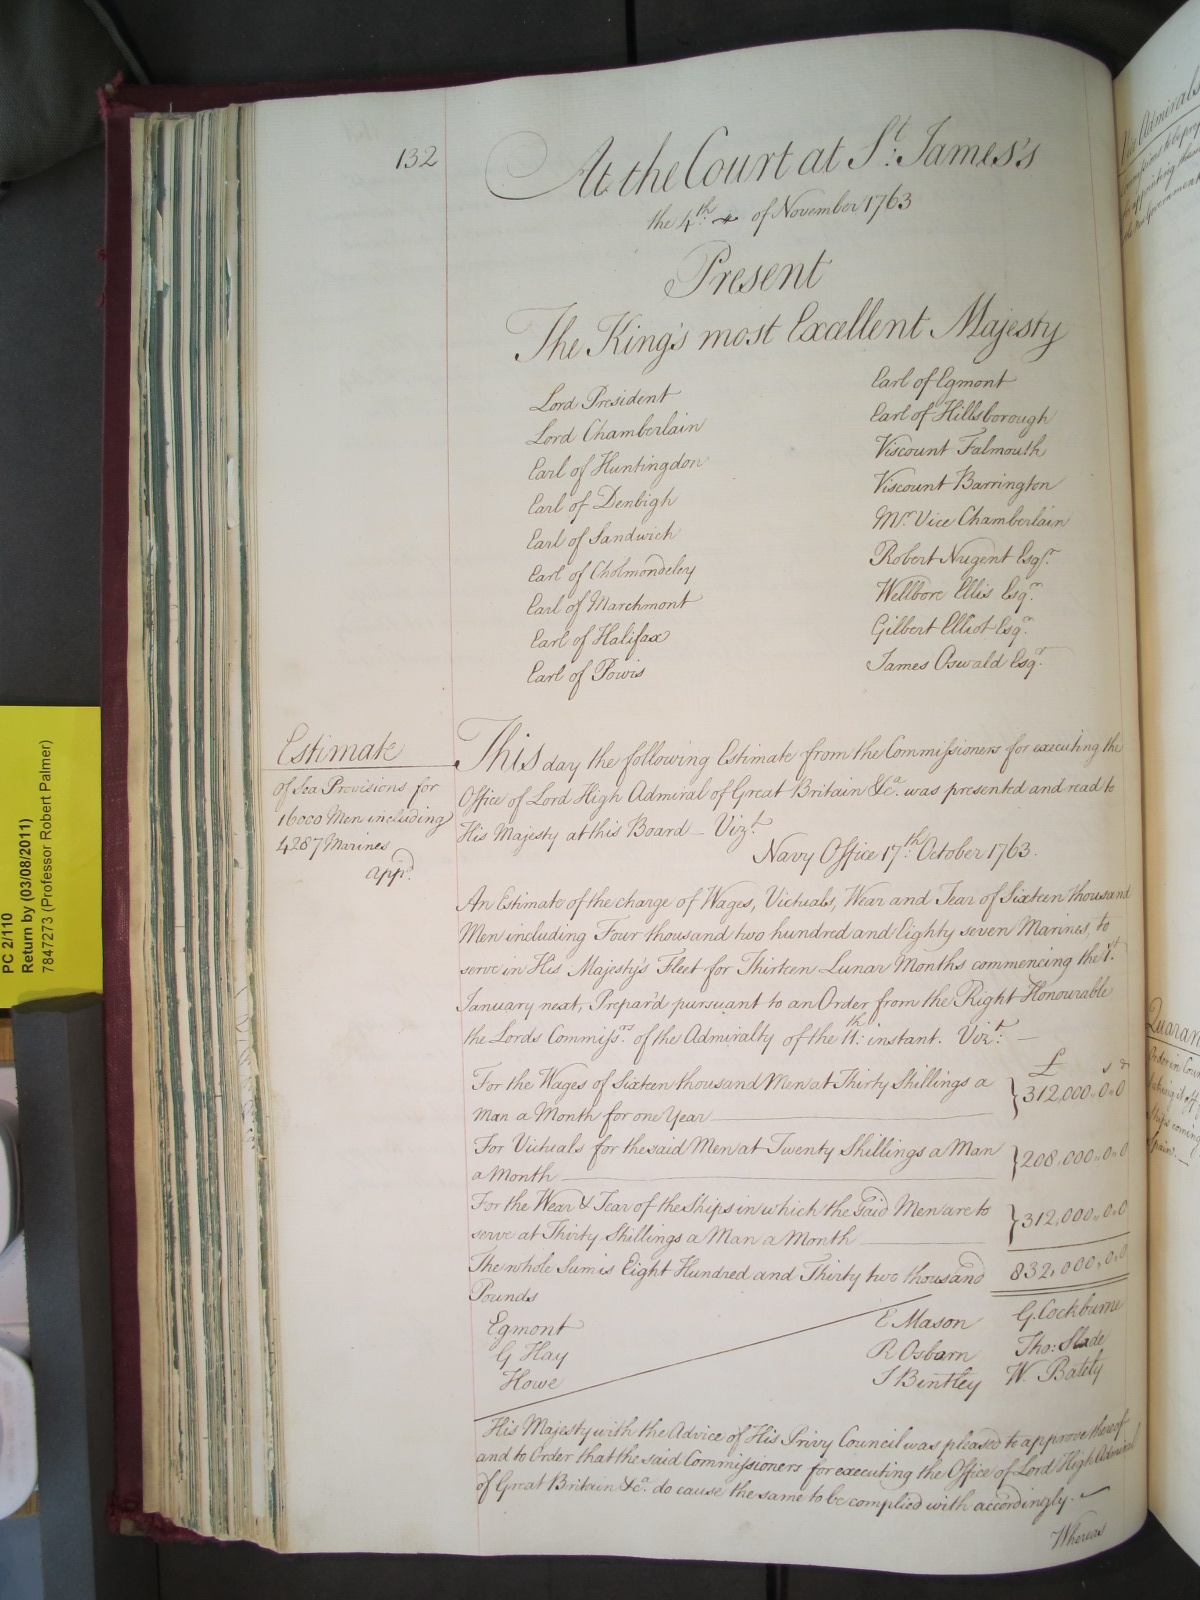 132
At the Court at St: James's
the 4th: of November 1763
Present
The King's most Excellent Majesty
Lord President
Lord Chamberlain
Earl of Huntingdon
Earl of Denbigh
Earl of Sandwich
Earl of Cholmondeley
Earl of Marchmont
Earl of Halifax
Earl of Powis
Earl of Egmont
Earl of Hillsborough
Viscount Falmouth
Viscount Barrington
Mr. Vice Chamberlain
Robert Nugent Esqr.
Wellbore Ellis Esqr.
Gilbert Elliot Esqr.
James Oswald Esqr.
Estimate
of Sea Provisions for
16000 Men including
4287 Marines
appd.
This day the following Estimate from the Commissioners for executing the
Office of Lord High Admiral of Great Britain &ca. was presented and read to
His Majesty at this Board – Vizt.
Navy Office 17th: October 1763.
An Estimate of the charge of Wages, Victuals, Wear and Tear of Sixteen thousand
Men including Four thousand two hundred and Eighty seven Marines, to
serve in His Majesty's Fleet for Thirteen Lunar Months commencing the 1st.
January next, Prepar'd pursuant to an Order from the Right Honourable
the Lords Commissrs. of the Admiralty of the 11th: instant. Vizt: –
£ s d
For the Wages of Sixteen thousand Men at Thirty Shillings a
man a Month for one Year } 312,000,,0,,0
For Victuals for the said Men at Twenty Shillings a Man
a Month } 208,000,,0,,0
For the Wear & Tear of the Ships in which the said Men are to
serve at Thirty Shillings a Man a Month } 312,000,,0,,0
The whole Sum is Eight Hundred and Thirty two thousand 832,000,,0,,0
Pounds
Egmont
G Hay
Howe
E Mason
R Osbarn
T Bentley
G. Cockburne
Tho: Slade
W. Bately
His Majesty with the Advice of His Privy Council was pleased to approve thereof
and to Order that the said Commissioners for executing the Office of Lord High Admiral
of Great Britain &ca. do cause the same to be complied with accordingly.
Whereas
PC 2/110
Return by (03/08/2011)
7847273 (Professor Robert Palmer)